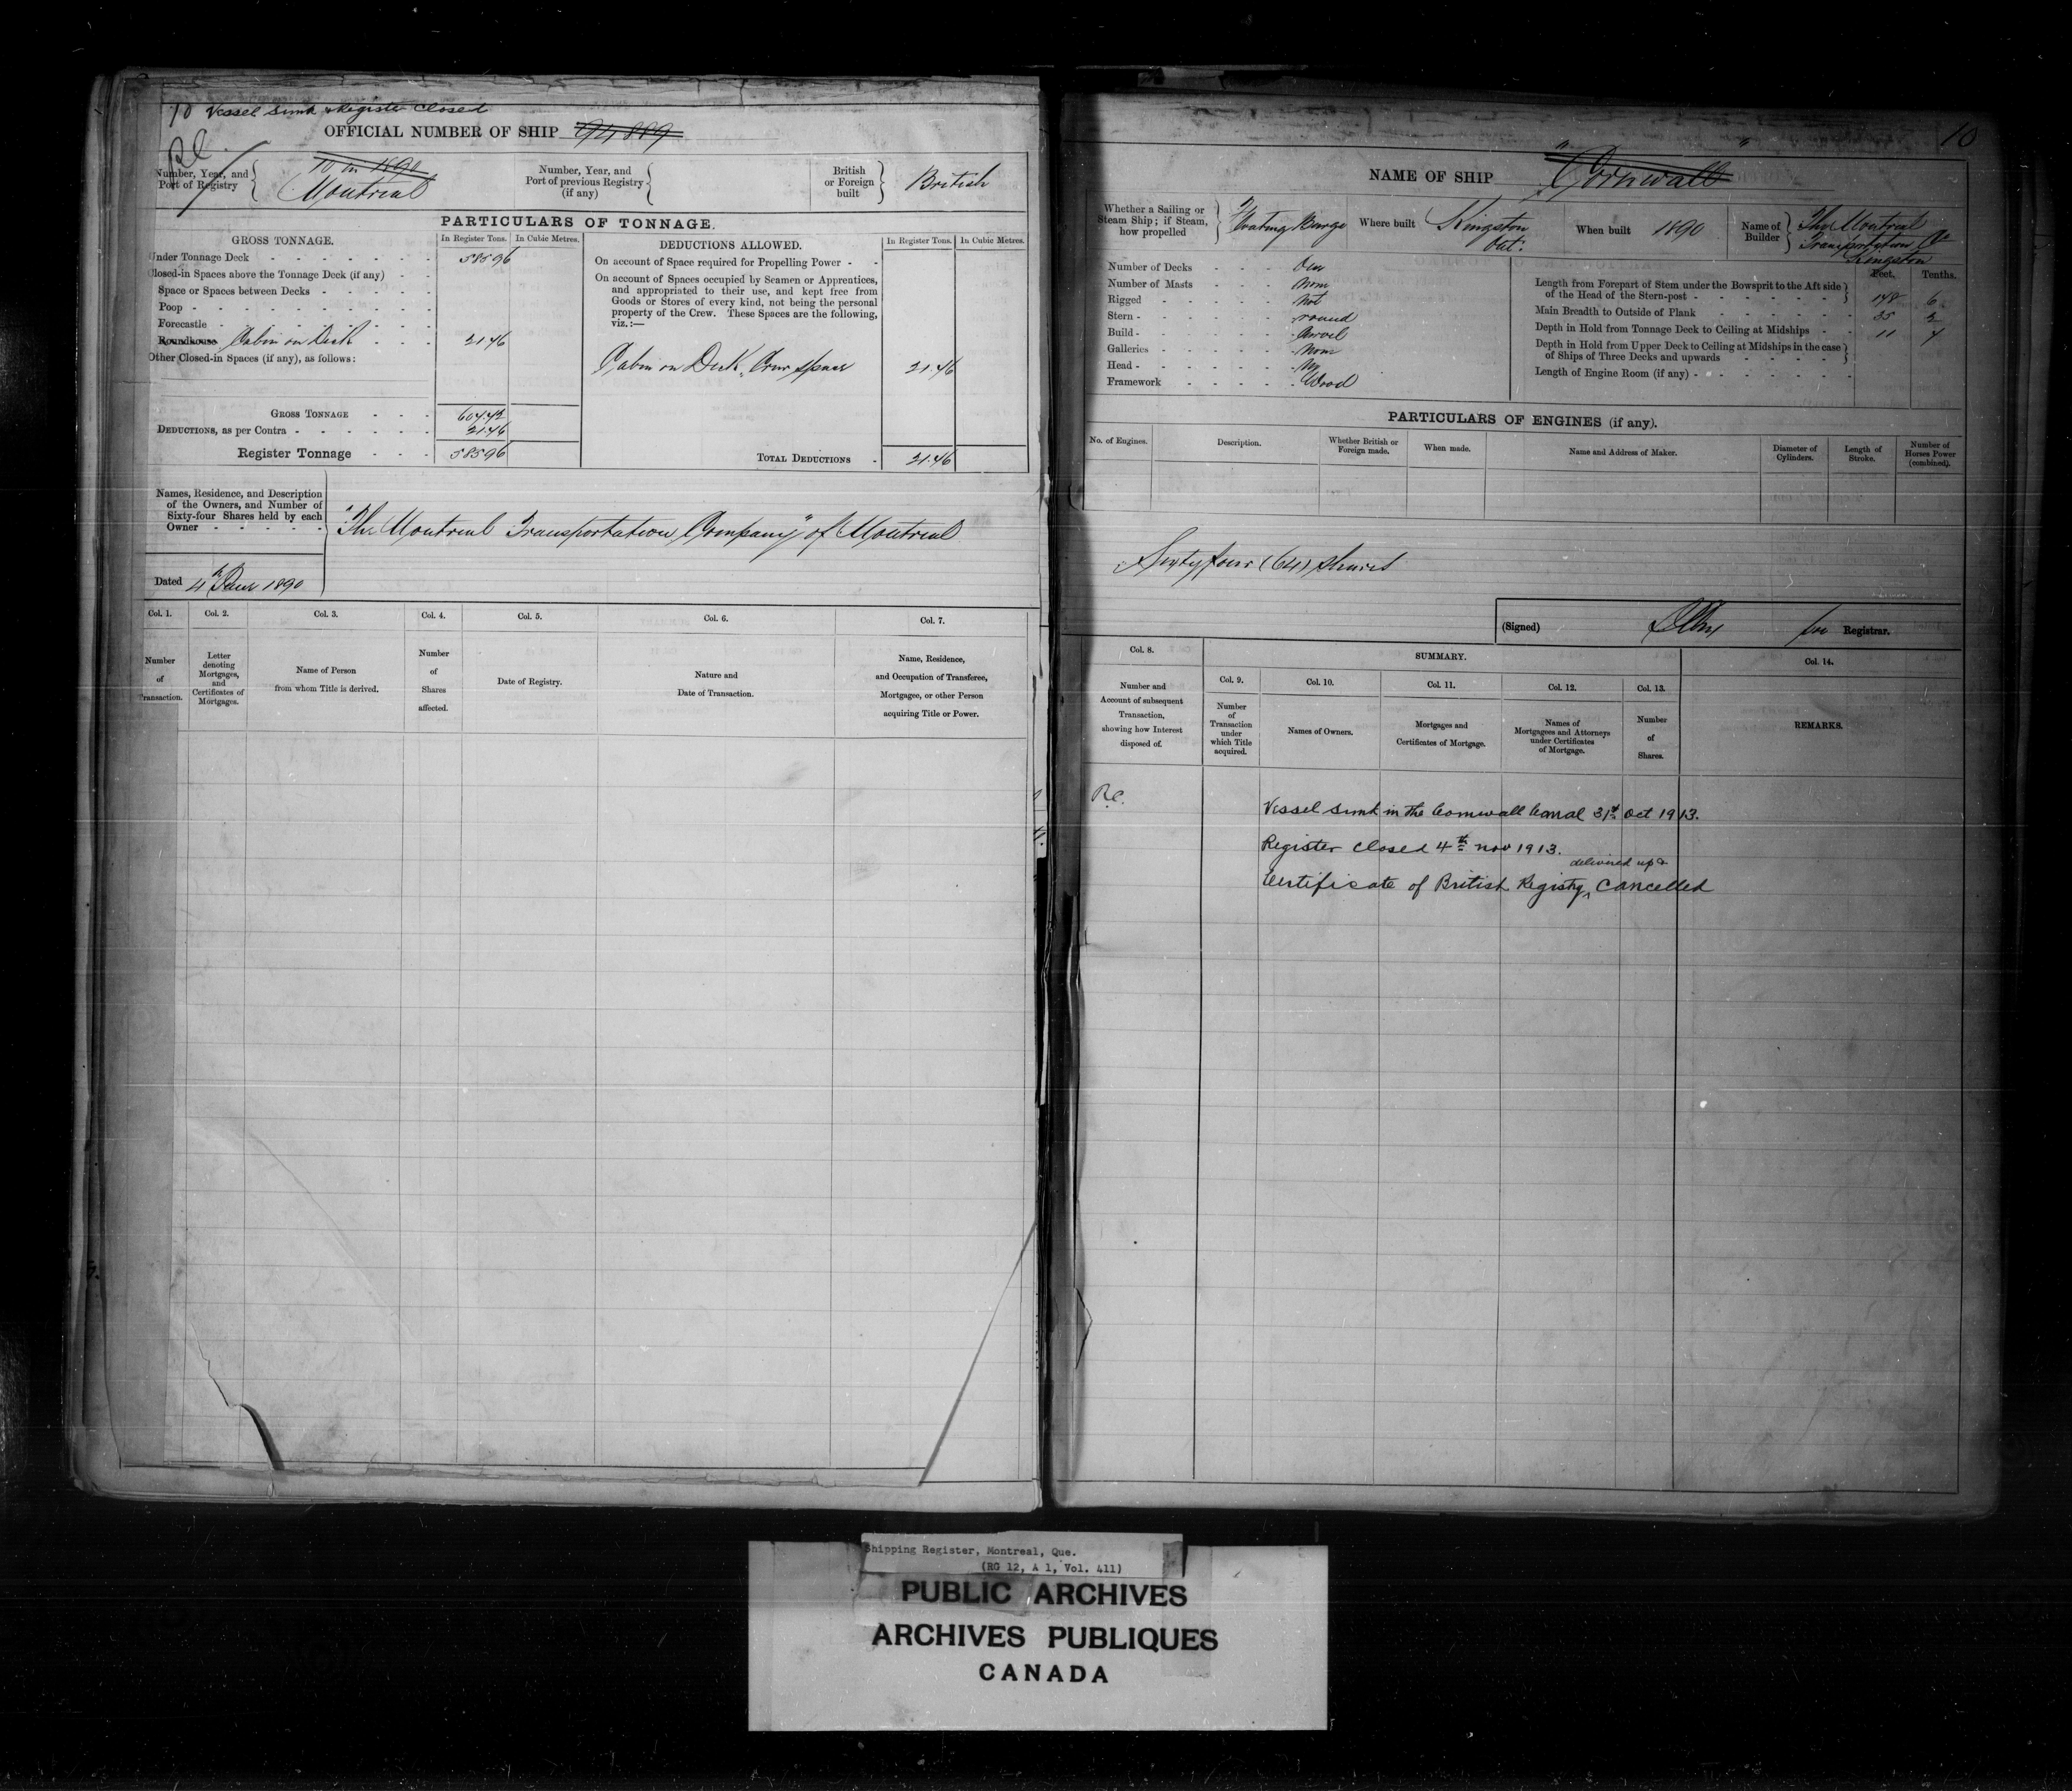 10 Vessel sunk Register closed
R.C.
OFFICIAL NUMBER OF SHIP 94889
Number, Year, and Port of Registry
10 in 1890
Montreal
Number, Year, and Port of previous Registry (if any)
British or Foreign built
British
PARTICULARS OF TONNAGE.
GROSS TONNAGE. In Register Tons. In Cubic Metres.
Under Tonnage Deck 585.96
Closed-in Spaces above the Tonnage Deck (if any)
Space or Spaces between Decks
Poop
Forecastle
Roundhouse Cabin on Deck 21.46
Other Closed-in Spaces (if any), as follows:
GROSS TONNAGE 607.42
DEDUCTIONS, as per Contra 21.46
Register Tonnage 585.96
DEDUCTIONS ALLOWED. In Register Tons. In Cubic Metres.
On account of Space required for Propelling Power
On account of Spaces occupied by Seamen or Apprentices,
and appropriated to their use, and kept free from
Goods or Stores of every kind, not being the personal
property of the Crew. These Spaces are the following,
viz.:—
Cabin on Deck, Crew space 21.46
TOTAL DEDUCTIONS 21.46
Names, Residence, and Description
of the Owners, and Number of
Sixty-four Shares held by each
Owner
"The Montreal Transportation Company" of Montreal
Dated 4th June 1890
Col. 1. Col. 2. Col. 3. Col. 4. Col. 5. Col. 6. Col. 7.
Number of Transaction.
Letter denoting Mortgages, and Certificates of Mortgages.
Name of Person from whom Title is derived.
Number of Shares affected.
Date of Registry.
Nature and Date of Transaction.
Name, Residence, and Occupation of Transferee, Mortgagee, or other Person acquiring Title or Power.
10
NAME OF SHIP "Cornwall"
Whether a Sailing or Steam Ship; if Steam, how propelled
Floating Barge
Where built Kingston Ont.
When built 1890
Name of Builder
The Montreal
Transportation Co
Kingston
Number of Decks One
Number of Masts None
Rigged Not
Stern round
Build Carvel
Galleries None
Head No
Framework Wood
Feet. Tenths.
Length from Forepart of Stem under the Bowsprit to the Aft side
of the Head of the Stern-post 178 6
Main Breadth to Outside of Plank 35 2
Depth in Hold from Tonnage Deck to Ceiling at Midships 11 4
Depth in Hold from Upper Deck to Ceiling at Midships in the case
of Ships of Three Decks and upwards
Length of Engine Room (if any)
PARTICULARS OF ENGINES (if any).
No. of Engines. Description. Whether British or Foreign made. When made. Name and Address of Maker. Diameter of Cylinders. Length of Stroke. Number of Horses Power (combined).
Sixty four (64) shares
(Signed) for Registrar.
Col. 8. SUMMARY. Col. 14.
Col. 9. Col. 10. Col. 11. Col. 12. Col. 13.
Number and Account of subsequent Transaction, showing how Interest disposed of.
Number of Transaction under which Title acquired.
Names of Owners.
Mortgages and Certificates of Mortgage.
Names of Mortgagees and Attorneys under Certificates of Mortgage.
Number of Shares.
REMARKS.
R.C.
Vessel sunk in the Cornwall Canal 31st Oct 1913.
Register closed 4th Nov 1913.
delivered up &
Certificate of British Registry ‸ Cancelled
Shipping Register, Montreal, Que.
(RG 12, A 1, Vol. 411)
PUBLIC ARCHIVES
ARCHIVES PUBLIQUES
CANADA